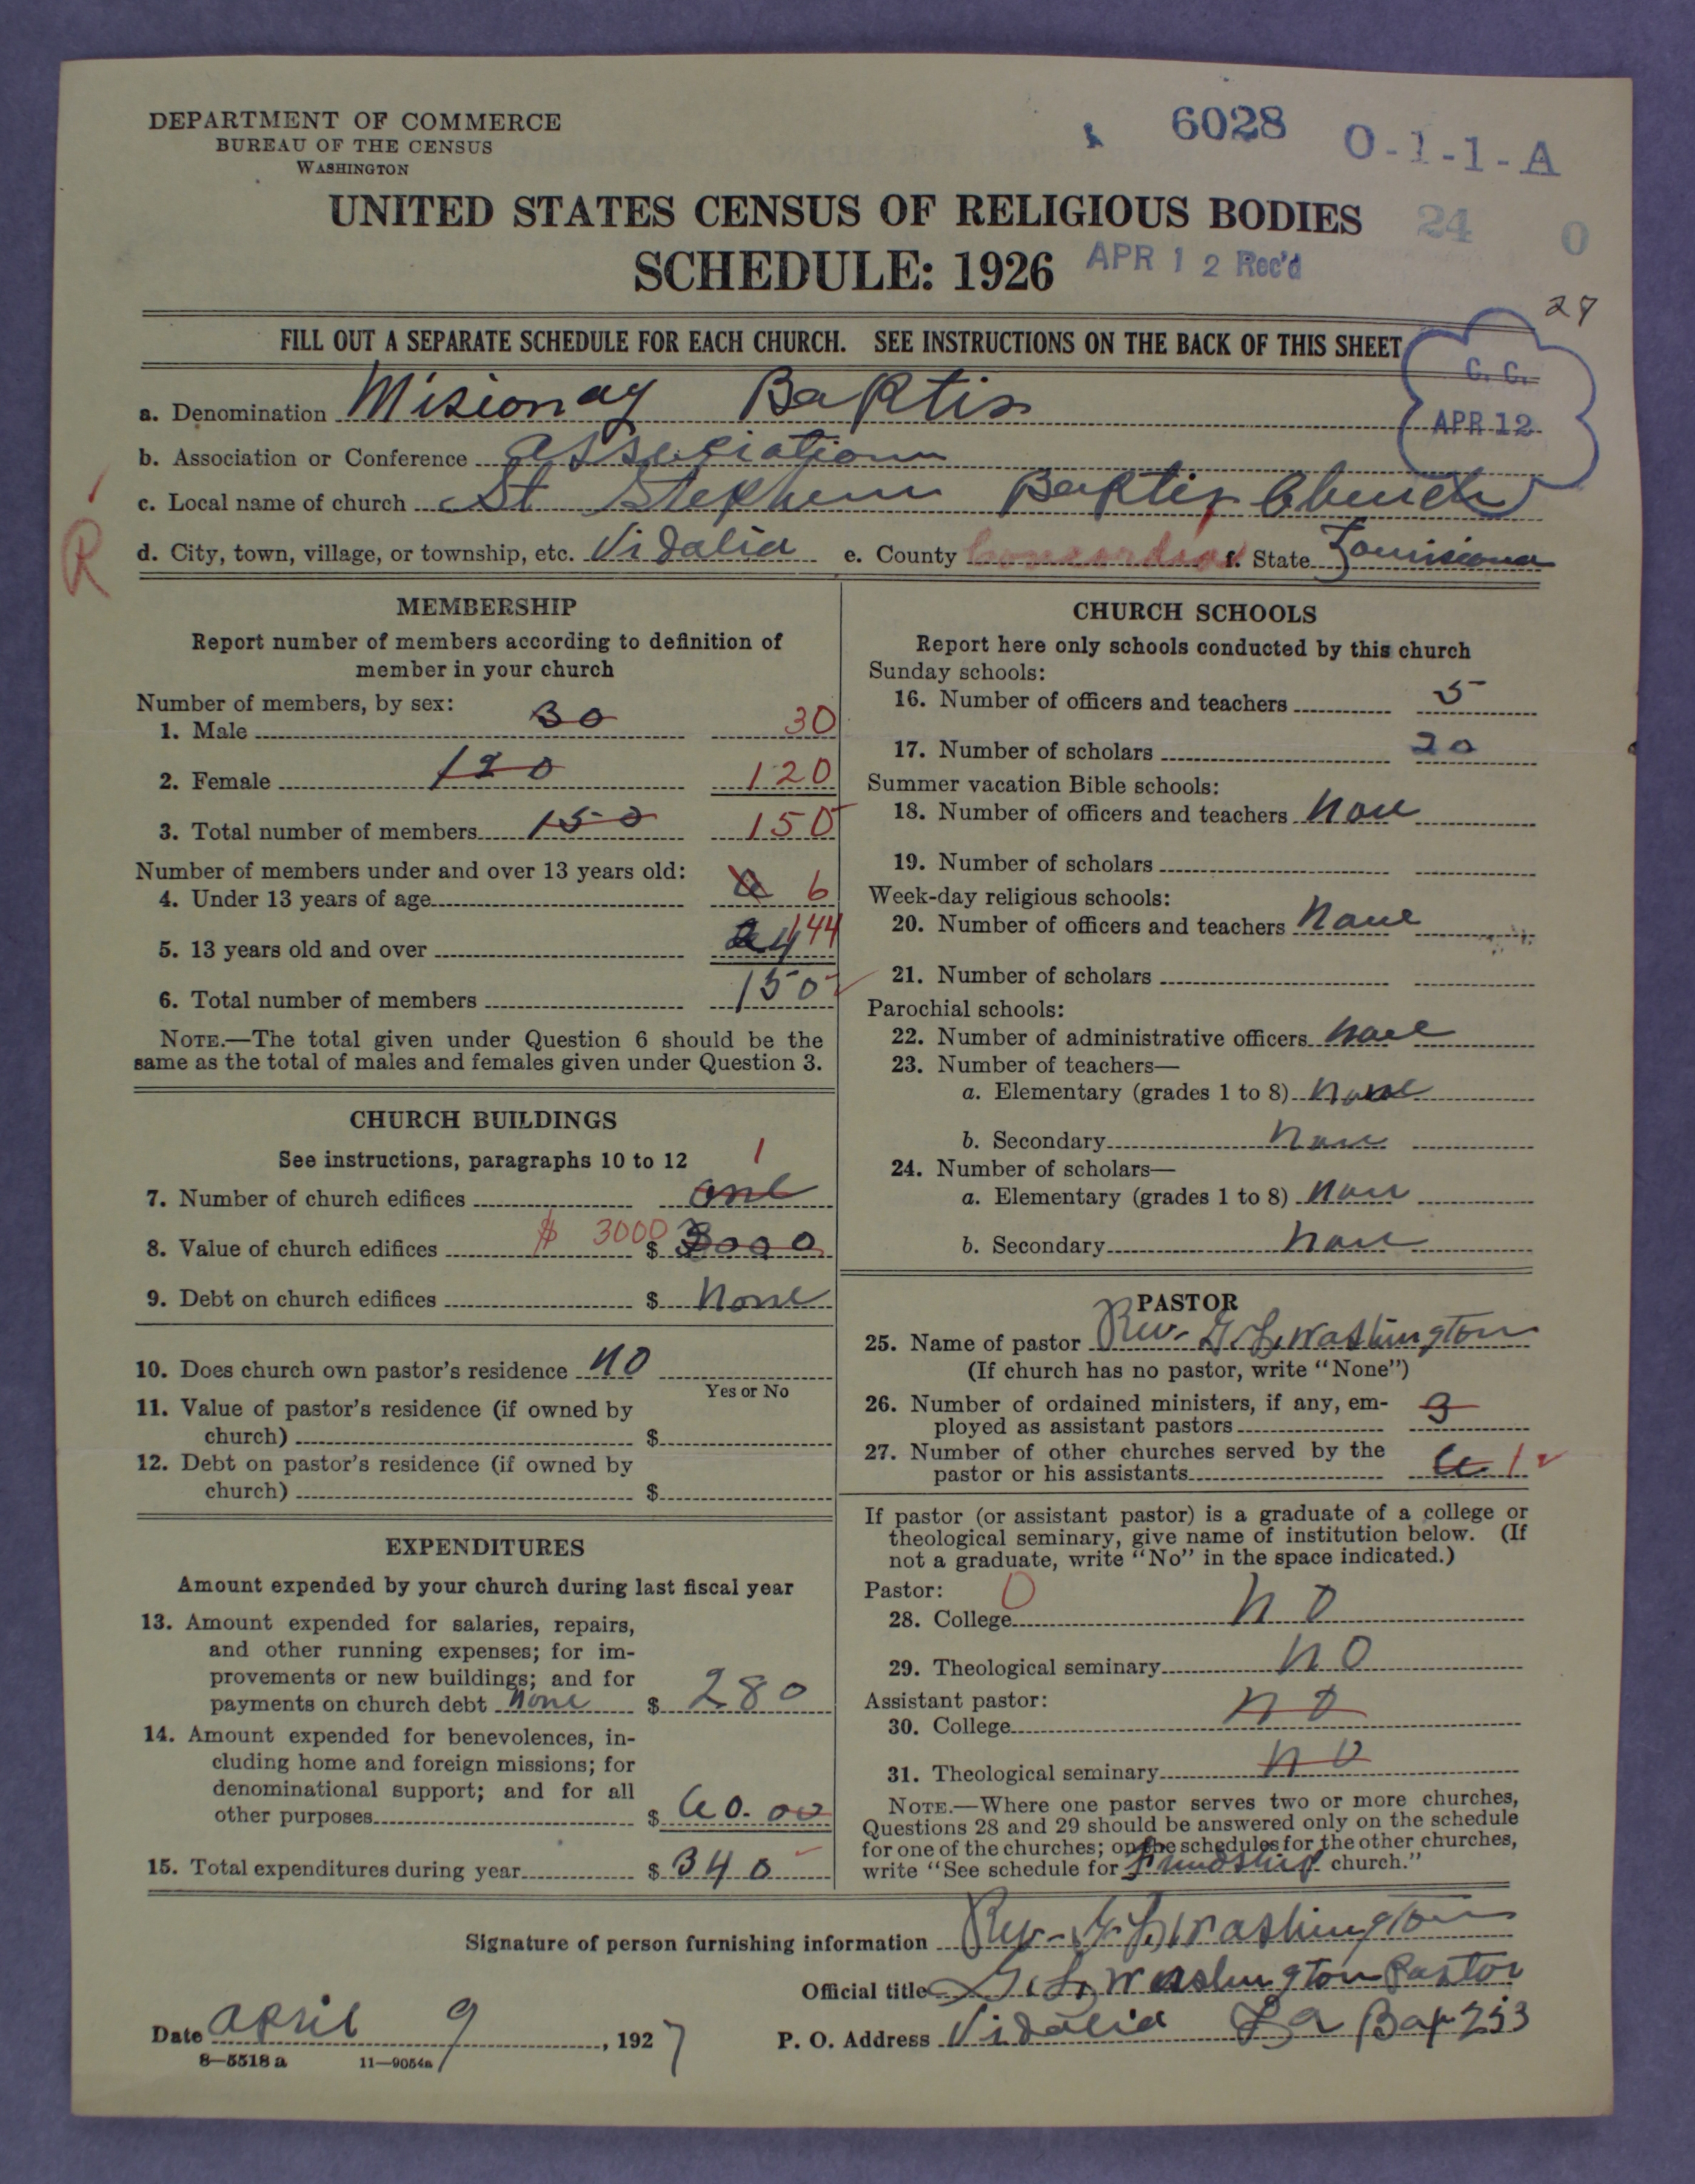 DEPARTMENT OF COMMERCE
BUREAU OF THE CENSUS
WASHINGTON
6028
O-1-1-A
UNITED STATES CENSUS OF RELIGIOUS BODIES
24 0
SCHEDULE: 1926
APR 12 Rec'd
FILL OUT A SEPARATE SCHEDULE FOR EACH CHURCH. SEE INSTRUCTIONS ON THE BACK OF THIS SHEET
C. C.
APR 12
a. Denomination Misionay Baptis
b. Association or Conference Association
c. Local name of church St Stephen Baptis Church
R
d. City, town, village, or township, etc. Vidalia e. County Concordia f. State Louisiana
MEMBERSHIP
Report number of members according to definition of
member in your church
Number of members, by sex:
1. Male 30 30
2. Female 120 120
3. Total number of members 150 150
Number of members under and over 13 years old:
4. Under 13 years of age 6
5. 13 years old and over 144
6. Total number of members 150
NOTE.—The total given under Question 6 should be the
same as the total of males and females given under Question 3.
CHURCH BUILDINGS
See instructions, paragraphs 10 to 12
1
7. Number of church edifices one
8. Value of church edifices $ 3000 $ 3000
9. Debt on church edifices $ None
10. Does church own pastor's residence no
Yes or No
11. Value of pastor's residence (if owned by
church) $
12. Debt on pastor's residence (if owned by
church) $
EXPENDITURES
Amount expended by your church during last fiscal year
13. Amount expended for salaries, repairs,
and other running expenses; for im-
provements or new buildings; and for
payments on church debt none $ 280
14. Amount expended for benevolences, in-
cluding home and foreign missions; for
denominational support; and for all
other purposes $ 60.00
15. Total expenditures during year $ 340
CHURCH SCHOOLS
Report here only schools conducted by this church
Sunday schools:
16. Number of officers and teachers 5
17. Number of scholars 20
Summer vacation Bible schools:
18. Number of officers and teachers none
19. Number of scholars
Week-day religious schools:
20. Number of officers and teachers none
21. Number of scholars
Parochial schools:
22. Number of administrative officers none
23. Number of teachers—
a. Elementary (grades 1 to 8) none
b. Secondary none
24. Number of scholars—
a. Elementary (grades 1 to 8) none
b. Secondary none
PASTOR
25. Name of pastor Rev. G. L. Washington
(If church has no pastor, write "None")
26. Number of ordained ministers, if any, em-
ployed as assistant pastors 3
27. Number of other churches served by the
pastor or his assistants 1
If pastor (or assistant pastor) is a graduate of a college or
theological seminary, give name of institution below. (If
not a graduate, write "No" in the space indicated.)
Pastor: 0
28. College no
29. Theological seminary no
Assistant pastor:
30. College no
31. Theological seminary no
NOTE.—Where one pastor serves two or more churches,
Questions 28 and 29 should be answered only on the schedule
for one of the churches; on the schedules for the other churches,
write "See schedule for Frindship church."
Signature of person furnishing information Rev. G. L. Washington
Official title G. L. Washington Pastor
Date April 9, 1927 P. O. Address Vidalia La Box 253
8—5518 a 11—9054a